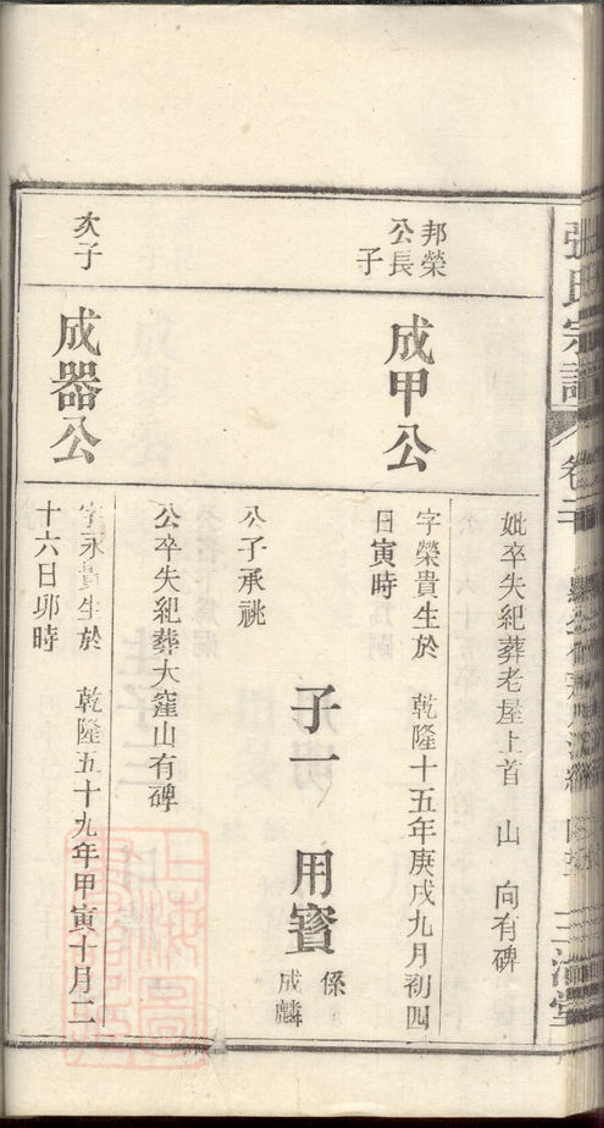 張氏宗譜
卷二
妣卒失紀葬老屋上首 山 向有碑
邦榮
公長
子
成甲公
字榮貴生於 乾隆十五年庚戌九月初四
日寅時
子一 用賓
係
成麟
公子承祧
公卒失紀葬大窪山有碑
次子
成器公
字永貴生於 乾隆五十九年甲寅十月二
十六日卯時